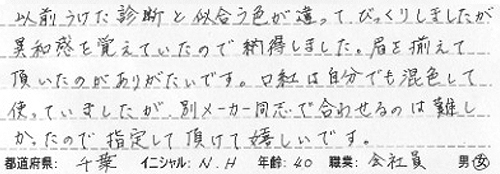 以前うけた診断と似合う色が違って びっくりしましたが
異和感を覚えていたので納得しました。眉を揃えて
頂いたのがありがたいです。口紅は自分でも混色して
使っていましたが、別メーカー同志で合わせるのは難し
かったので 指定して頂けて嬉しいです。
都道府県: 千葉 イニシャル: N.H 年齢: 40 職業: 会社員 男・女